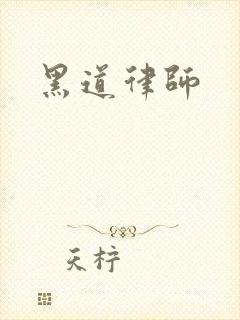 黑道律師
天柠